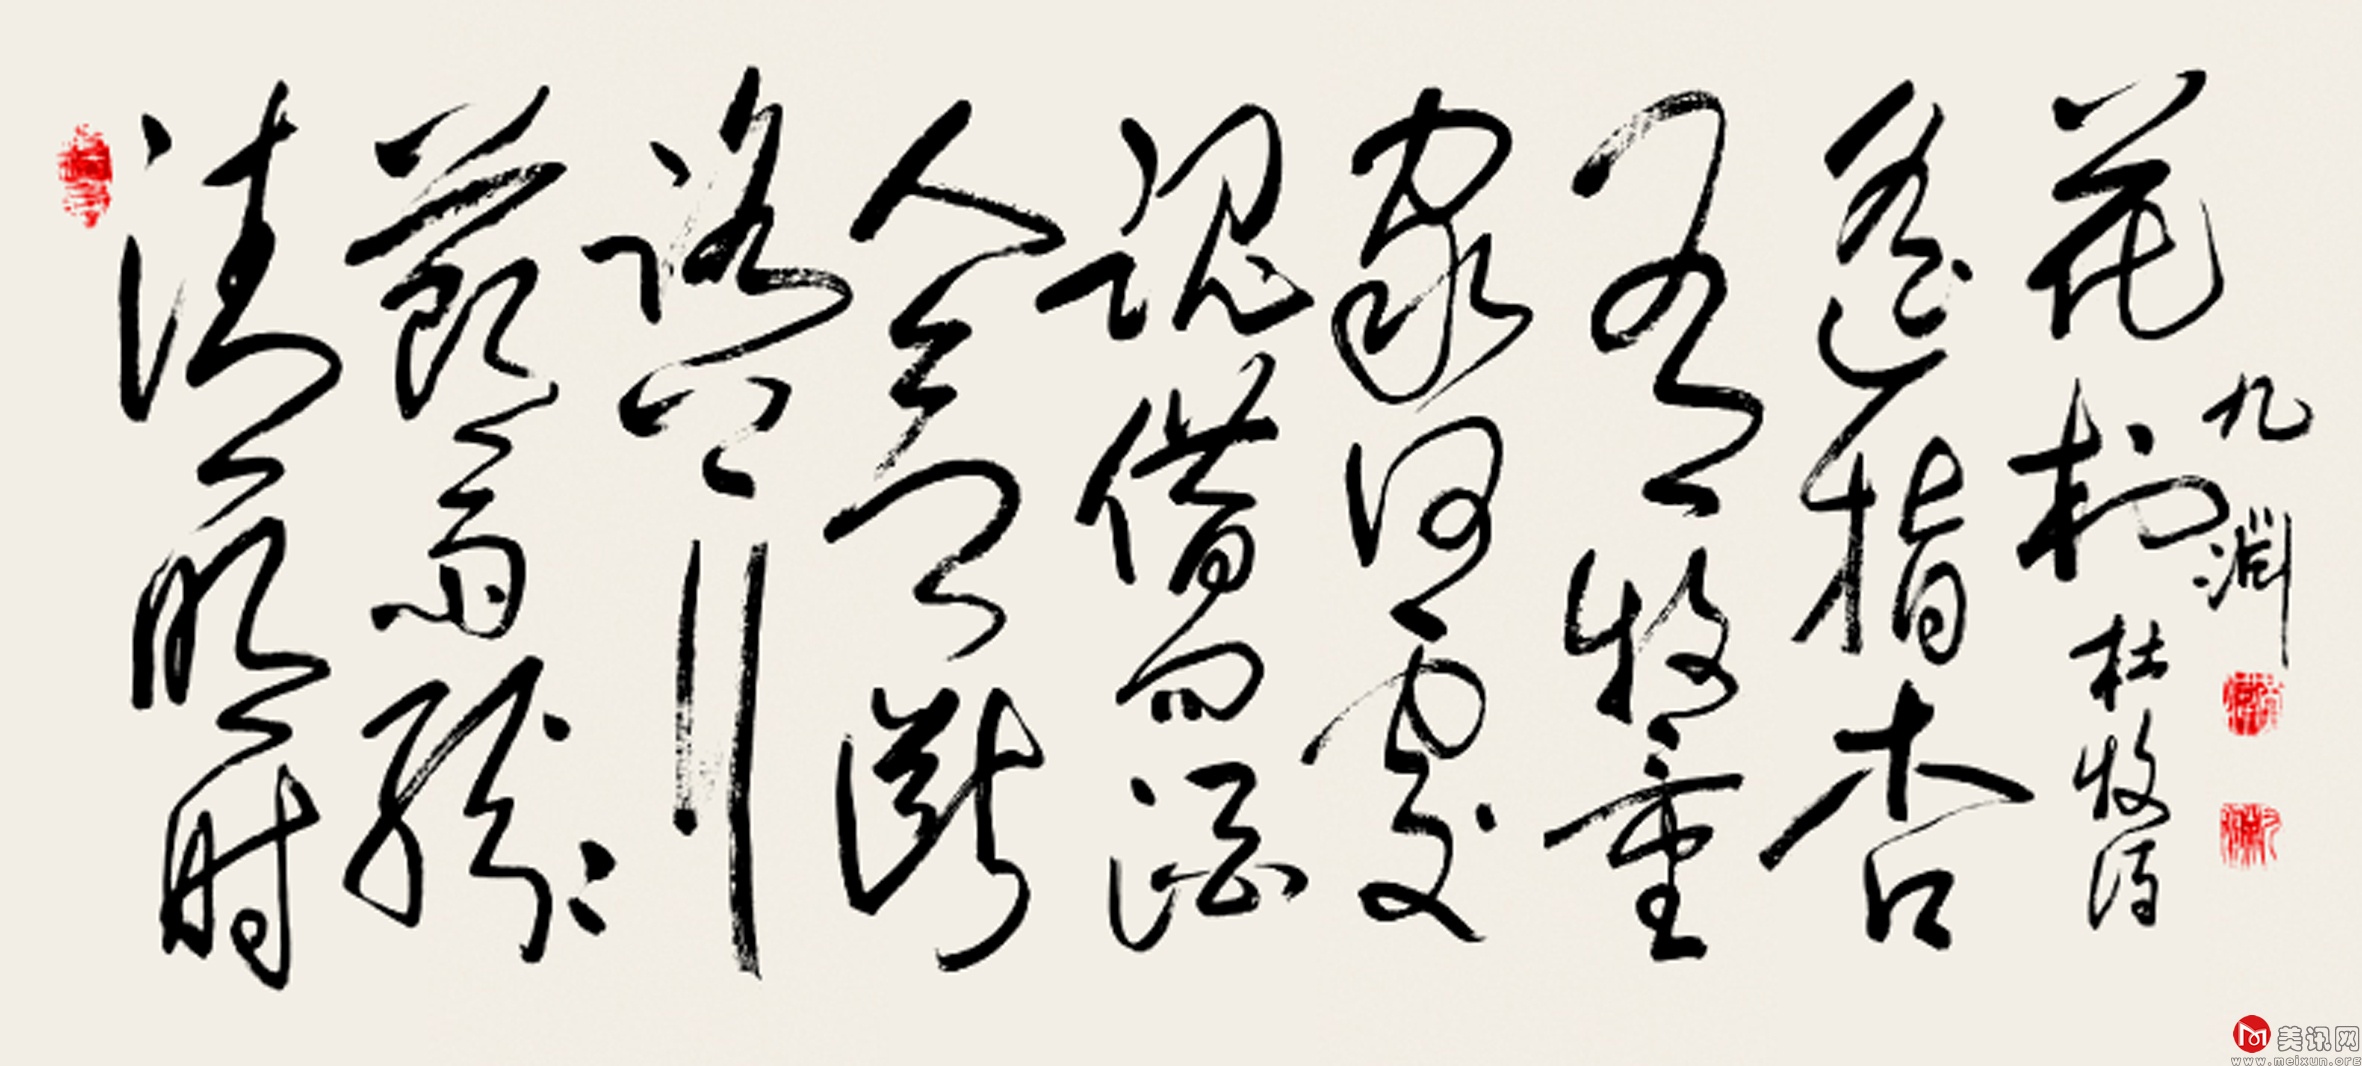 清明时
節雨紛々
路上行
人欲斷
魂借问酒
家何處
有牧童
遥指杏
花村 杜牧诗
九淵
美讯网
www.meixun.org